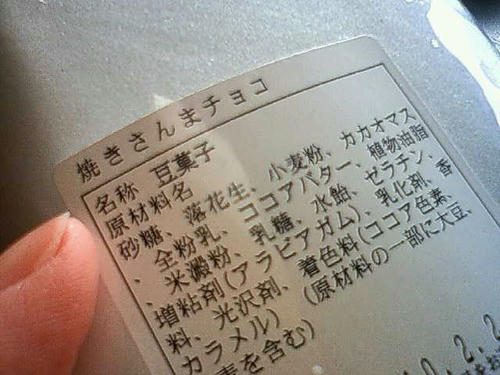 焼きさんまチョコ
名称 豆菓子
原材料名
砂糖、落花生、小麦粉、カカオマス
、全粉乳、ココアバター、植物油脂
、米澱粉、乳糖、水飴、ゼラチン、
増粘剤(アラビアガム)、乳化剤、香
料、光沢剤、着色料(ココア色素、
カラメル) (原材料の一部に大豆、
を含む)